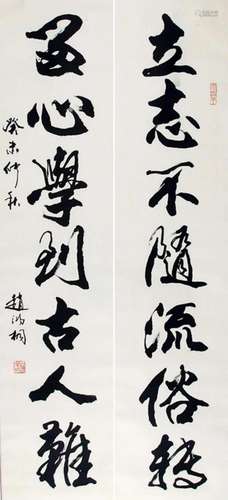 立志不隨流俗轉
留心學到古人難
癸未仲秋
趙鴻桐